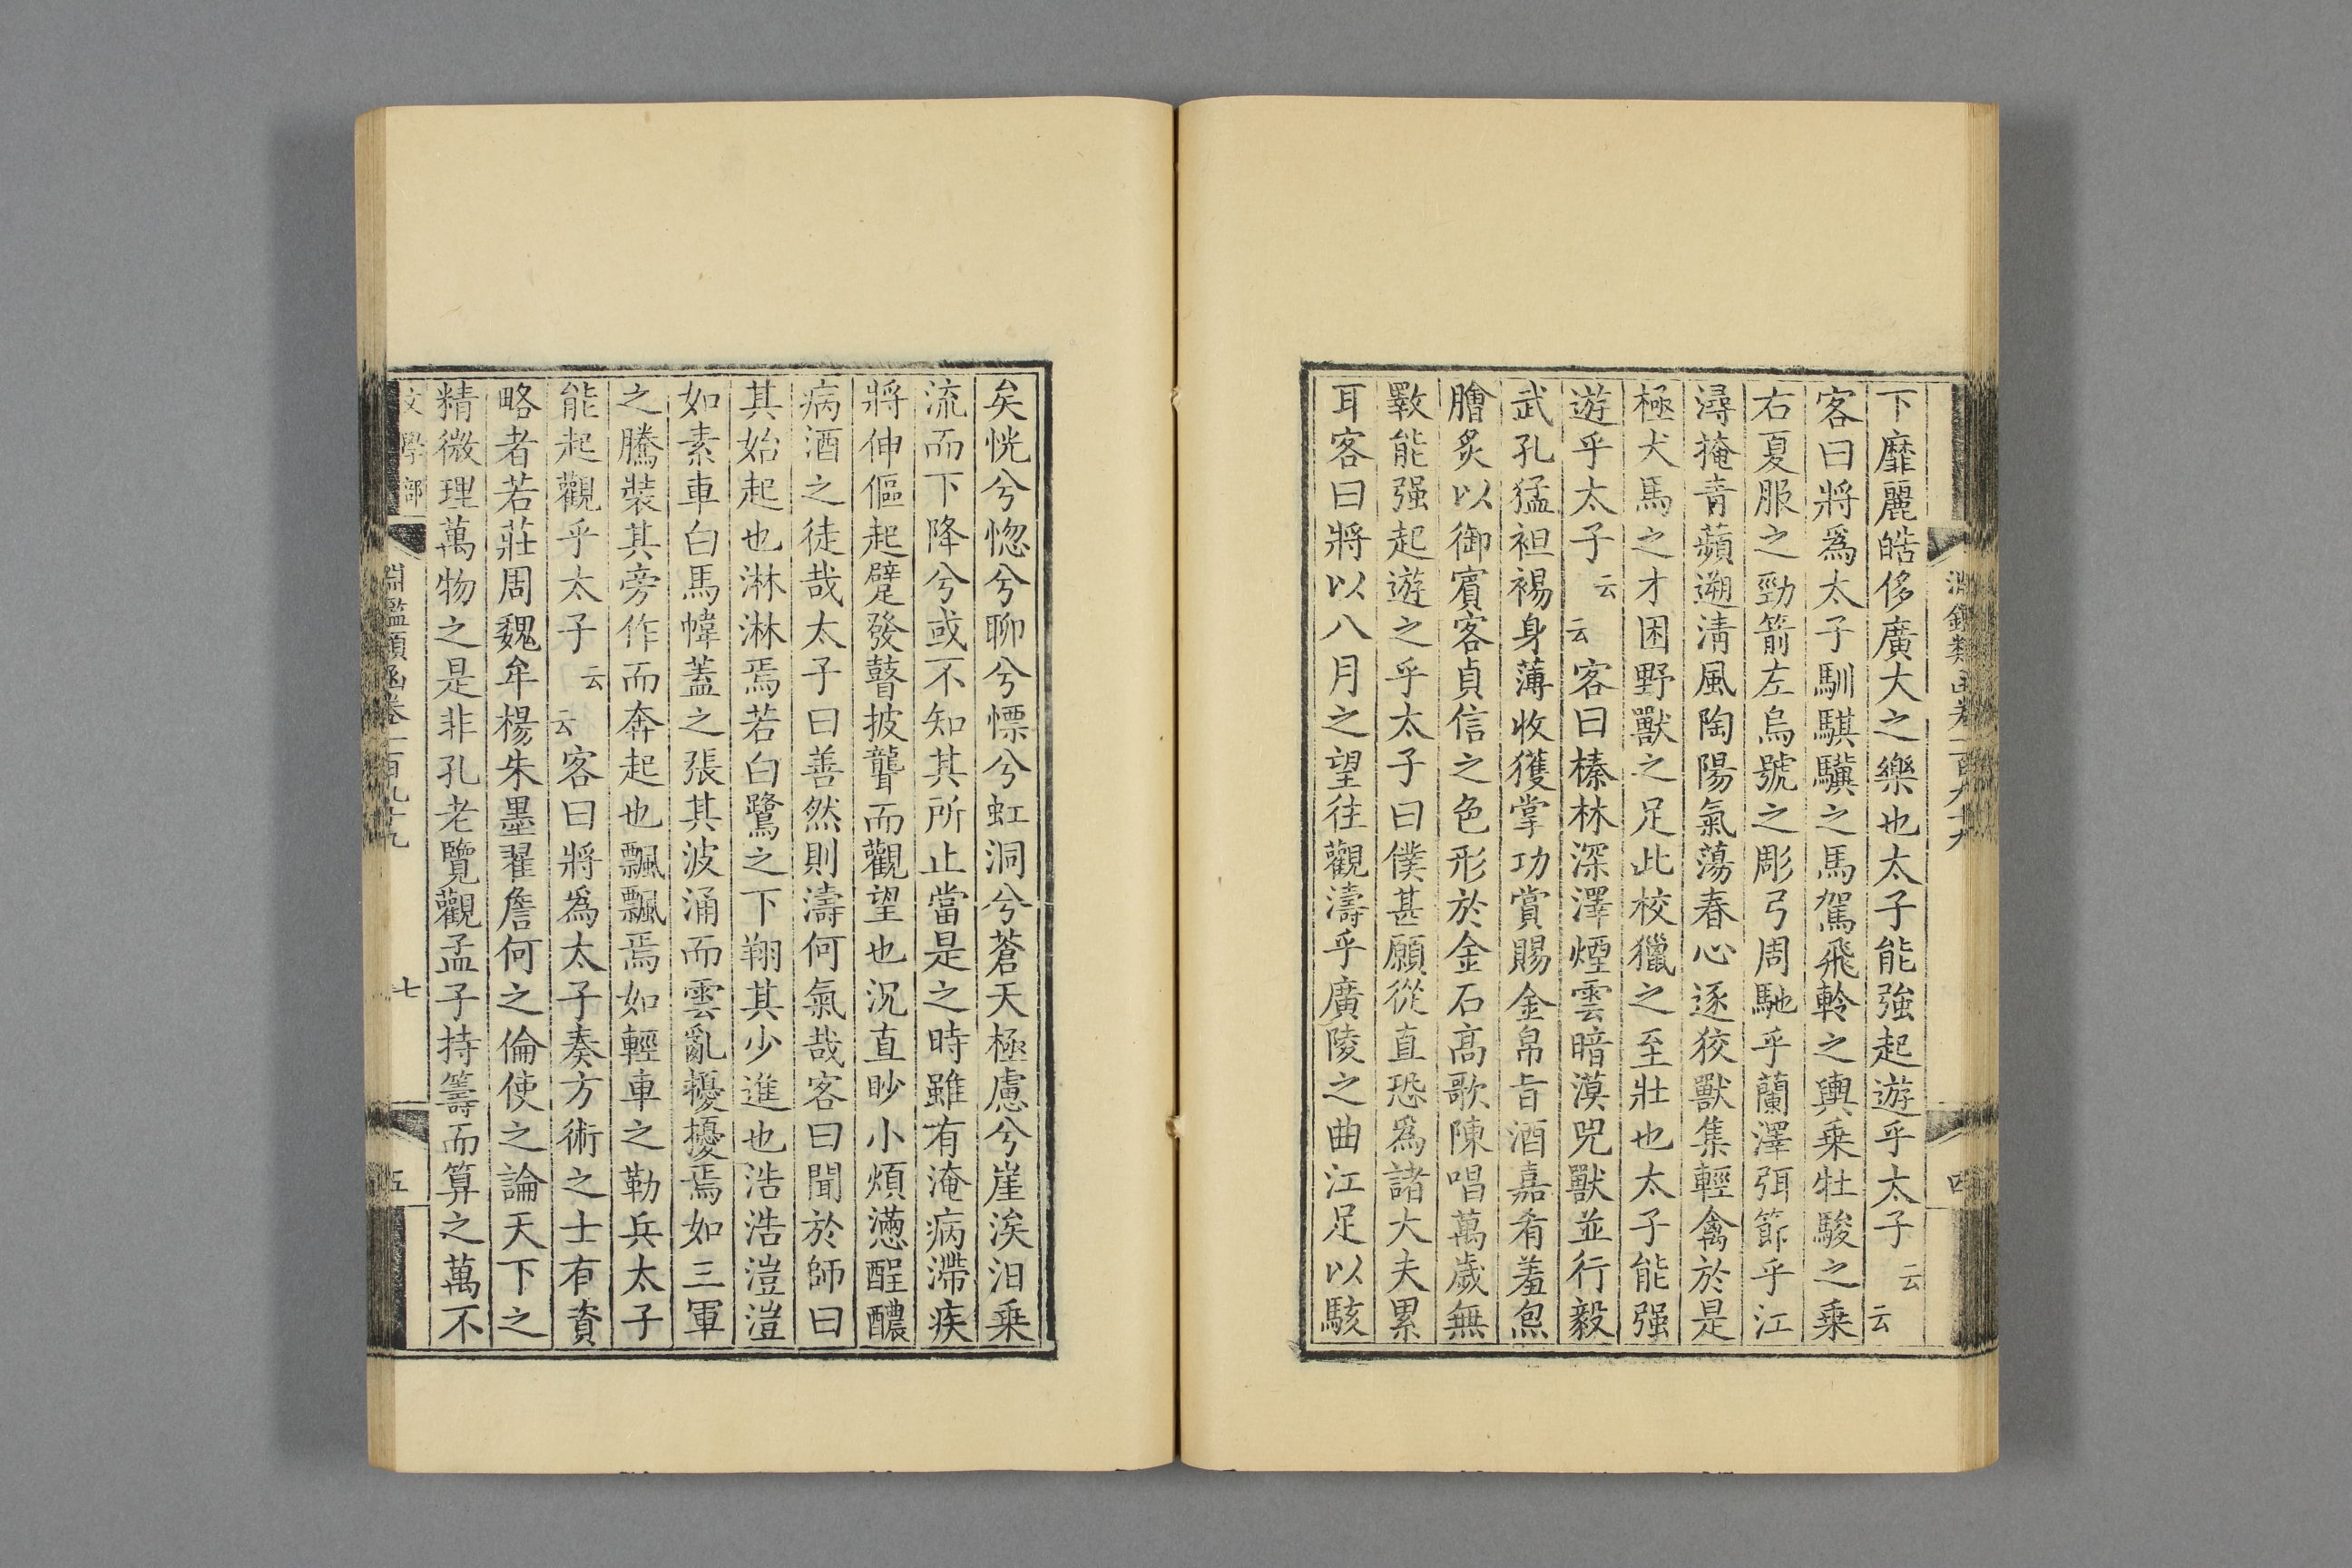 下靡麗皓侈廣大之樂也太子能強起遊乎太子云云
客曰將爲太子馴騏驥之馬駕飛軨之輿乗牡駿之乗
右夏服之勁箭左烏號之彫弓周馳乎蘭澤弭節乎江
潯掩青蘋遡淸風陶陽氣蕩春心逐狡獸集輕禽於是
極犬馬之才困野獸之足此校獵之至壯也太子能强
遊乎太子云云客曰榛林深澤煙雲暗漠兕獸並行毅
武孔猛袒裼身薄收獲掌功賞賜金帛旨酒嘉肴羞炰
膾炙以御賓客貞信之色形於金石高歌陳唱萬歲無
斁能强起遊之乎太子曰僕甚願從直恐爲諸大夫累
耳客曰將以八月之望往觀濤乎廣陵之曲江足以駭
淵鑑類函卷一百九十九
四
矣恍兮惚兮聊兮慓兮虹洞兮蒼天極慮兮崖涘汨乗
流而下降兮或不知其所止當是之時雖有淹病滯疾
將伸傴起躄發瞽披聾而觀望也况直眇小煩懣酲醲
病酒之徒哉太子曰善然則濤何氣哉客曰聞於師曰
其始起也淋淋焉若白鷺之下翔其少進也浩浩溰溰
如素車白馬幃蓋之張其波涌而雲亂擾擾焉如三軍
之騰裝其旁作而奔起也飄飄焉如輕車之勒兵太子
能起觀乎太子云云客曰將爲太子奏方術之士有資
略者若莊周魏牟楊朱墨翟詹何之倫使之論天下之
精微理萬物之是非孔老覽觀孟子持籌而算之萬不
文學部
淵鑑類函卷一百九十九
七
五